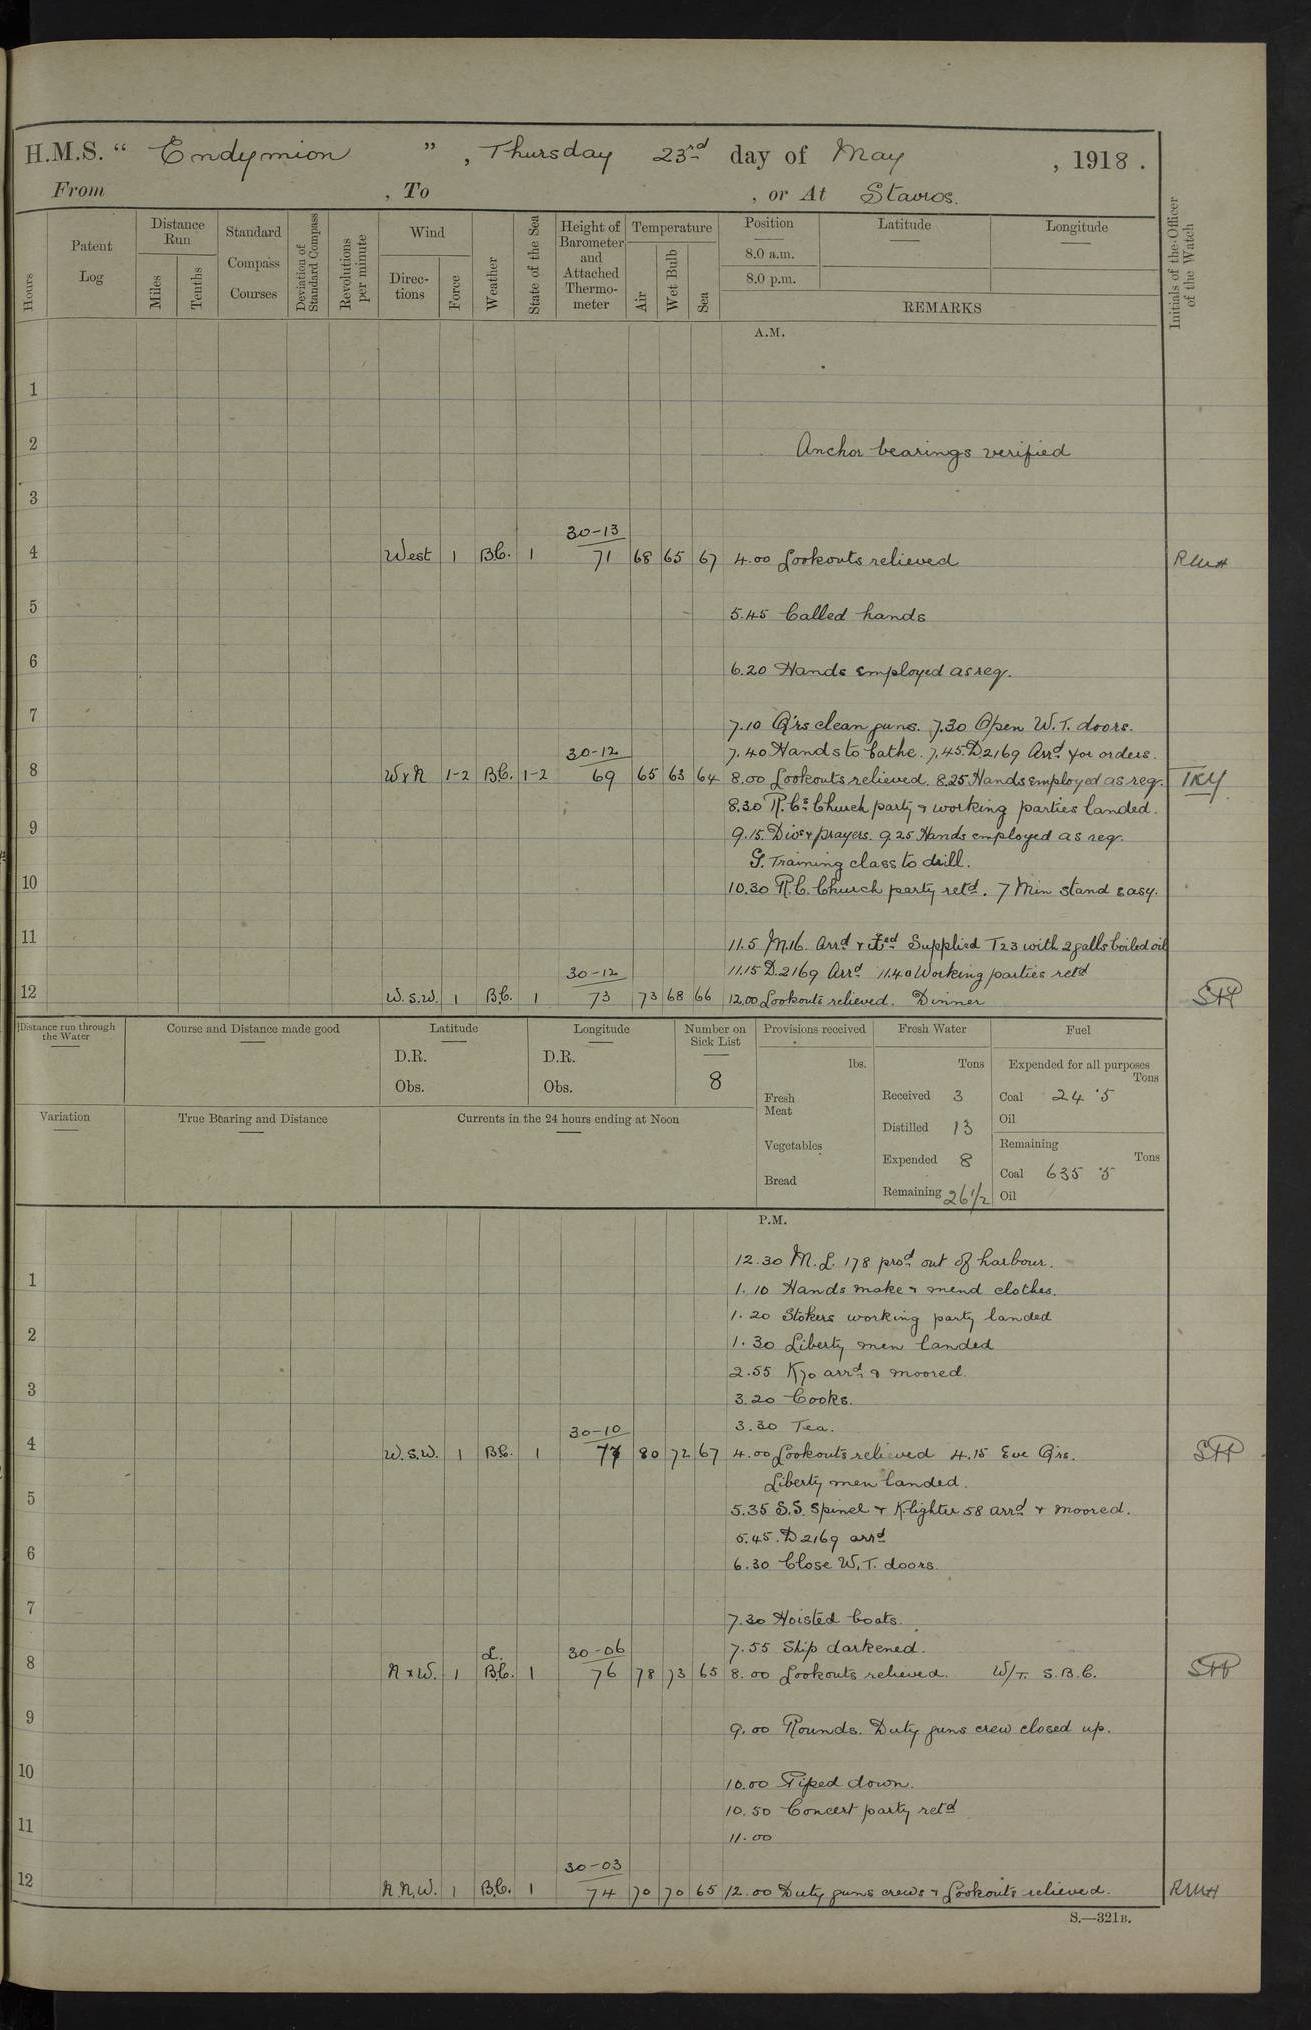 H.M.S. “ Endymion ” , Thursday 23rd day of May , 1918 .
From , To , or At Stavros.
Hours
Patent Log
Distance Run
Miles
Tenths
Standard Compass Courses
Deviation of Standard Compass
Revolutions per minute
Wind
Directions
Force
Weather
State of the Sea
Height of Barometer and Attached Thermometer
Temperature
Air
Wet Bulb
Sea
Position
8.0 a.m.
8.0 p.m.
Latitude
Longitude
REMARKS
Initials of the Officer of the Watch
A.M.
1
2 Anchor bearings verified
3
30-13
4 West 1 B.C. 1 71 68 65 67 4.00 Lookouts relieved RMH
5 5.45 Called hands
6 6.20 Hands employed as req.
7 7.10 Q'rs clean guns. 7.30 Open W.T. doors.
30-12 7.40 Hands to bathe. 7.45 D2169 Arrd for orders.
8 WxN 1-2 B.C. 1-2 69 65 63 64 8.00 Lookouts relieved. 8.25 Hands employed as req. TKY
8.30 R.Cs Church party & working parties landed.
9 9.15. Divs & prayers. 9.25 Hands employed as req.
G. Training class to drill.
10 10.30 R.C. Church party retd. 7 Min stand easy.
11 11.5 M.16. Arrd & Supplied T23 with 2 galls boiled oil
30-12 11.15 D.2169 Arrd 11.40 Working parties retd
12 W.S.W. 1 B.C. 1 73 73 68 66 12.00 Lookouts relieved. Dinner
Distance run through the Water
Course and Distance made good
Latitude
D.R.
Obs.
Longitude
D.R.
Obs.
Number on Sick List
8
Provisions received
lbs.
Fresh Meat
Vegetables
Bread
Fresh Water
Tons
Received 3
Distilled 13
Expended 8
Remaining 26 1/2
Fuel
Expended for all purposes
Tons
Coal 24.5
Oil
Remaining
Tons
Coal 635.5
Oil
Variation
True Bearing and Distance
Currents in the 24 hours ending at Noon
P.M.
12.30 M.L. 178 procd out of harbour.
1 1.10 Hands make & mend clothes.
1.20 Stokers working party landed
2 1.30 Liberty men landed
2.55 K70 arrd & moored.
3 3.20 Cooks.
30-10 3.30 Tea.
4 W.S.W. 1 B.C. 1 77 80 72 67 4.00 Lookouts relieved 4.15 Eve Qrs.
Liberty men landed.
5 5.35 S.S. Spinel & K.lighter 58 arrd & moored.
5.45. D2169 arrd
6 6.30 Close W.T. doors.
7 7.30 Hoisted boats.
L. 30-06 7.55 Ship darkened.
8 NxW. 1 B.C. 1 76 78 73 65 8.00 Lookouts relieved. W/T. S.B.C.
9 9.00 Rounds. Duty guns crew closed up.
10 10.00 Piped down.
10.50 Concert party retd
11 11.00
30-03
12 N.N.W. 1 B.C. 1 74 70 70 65 12.00 Duty guns crews & Lookouts relieved. RMH
S.—321B.